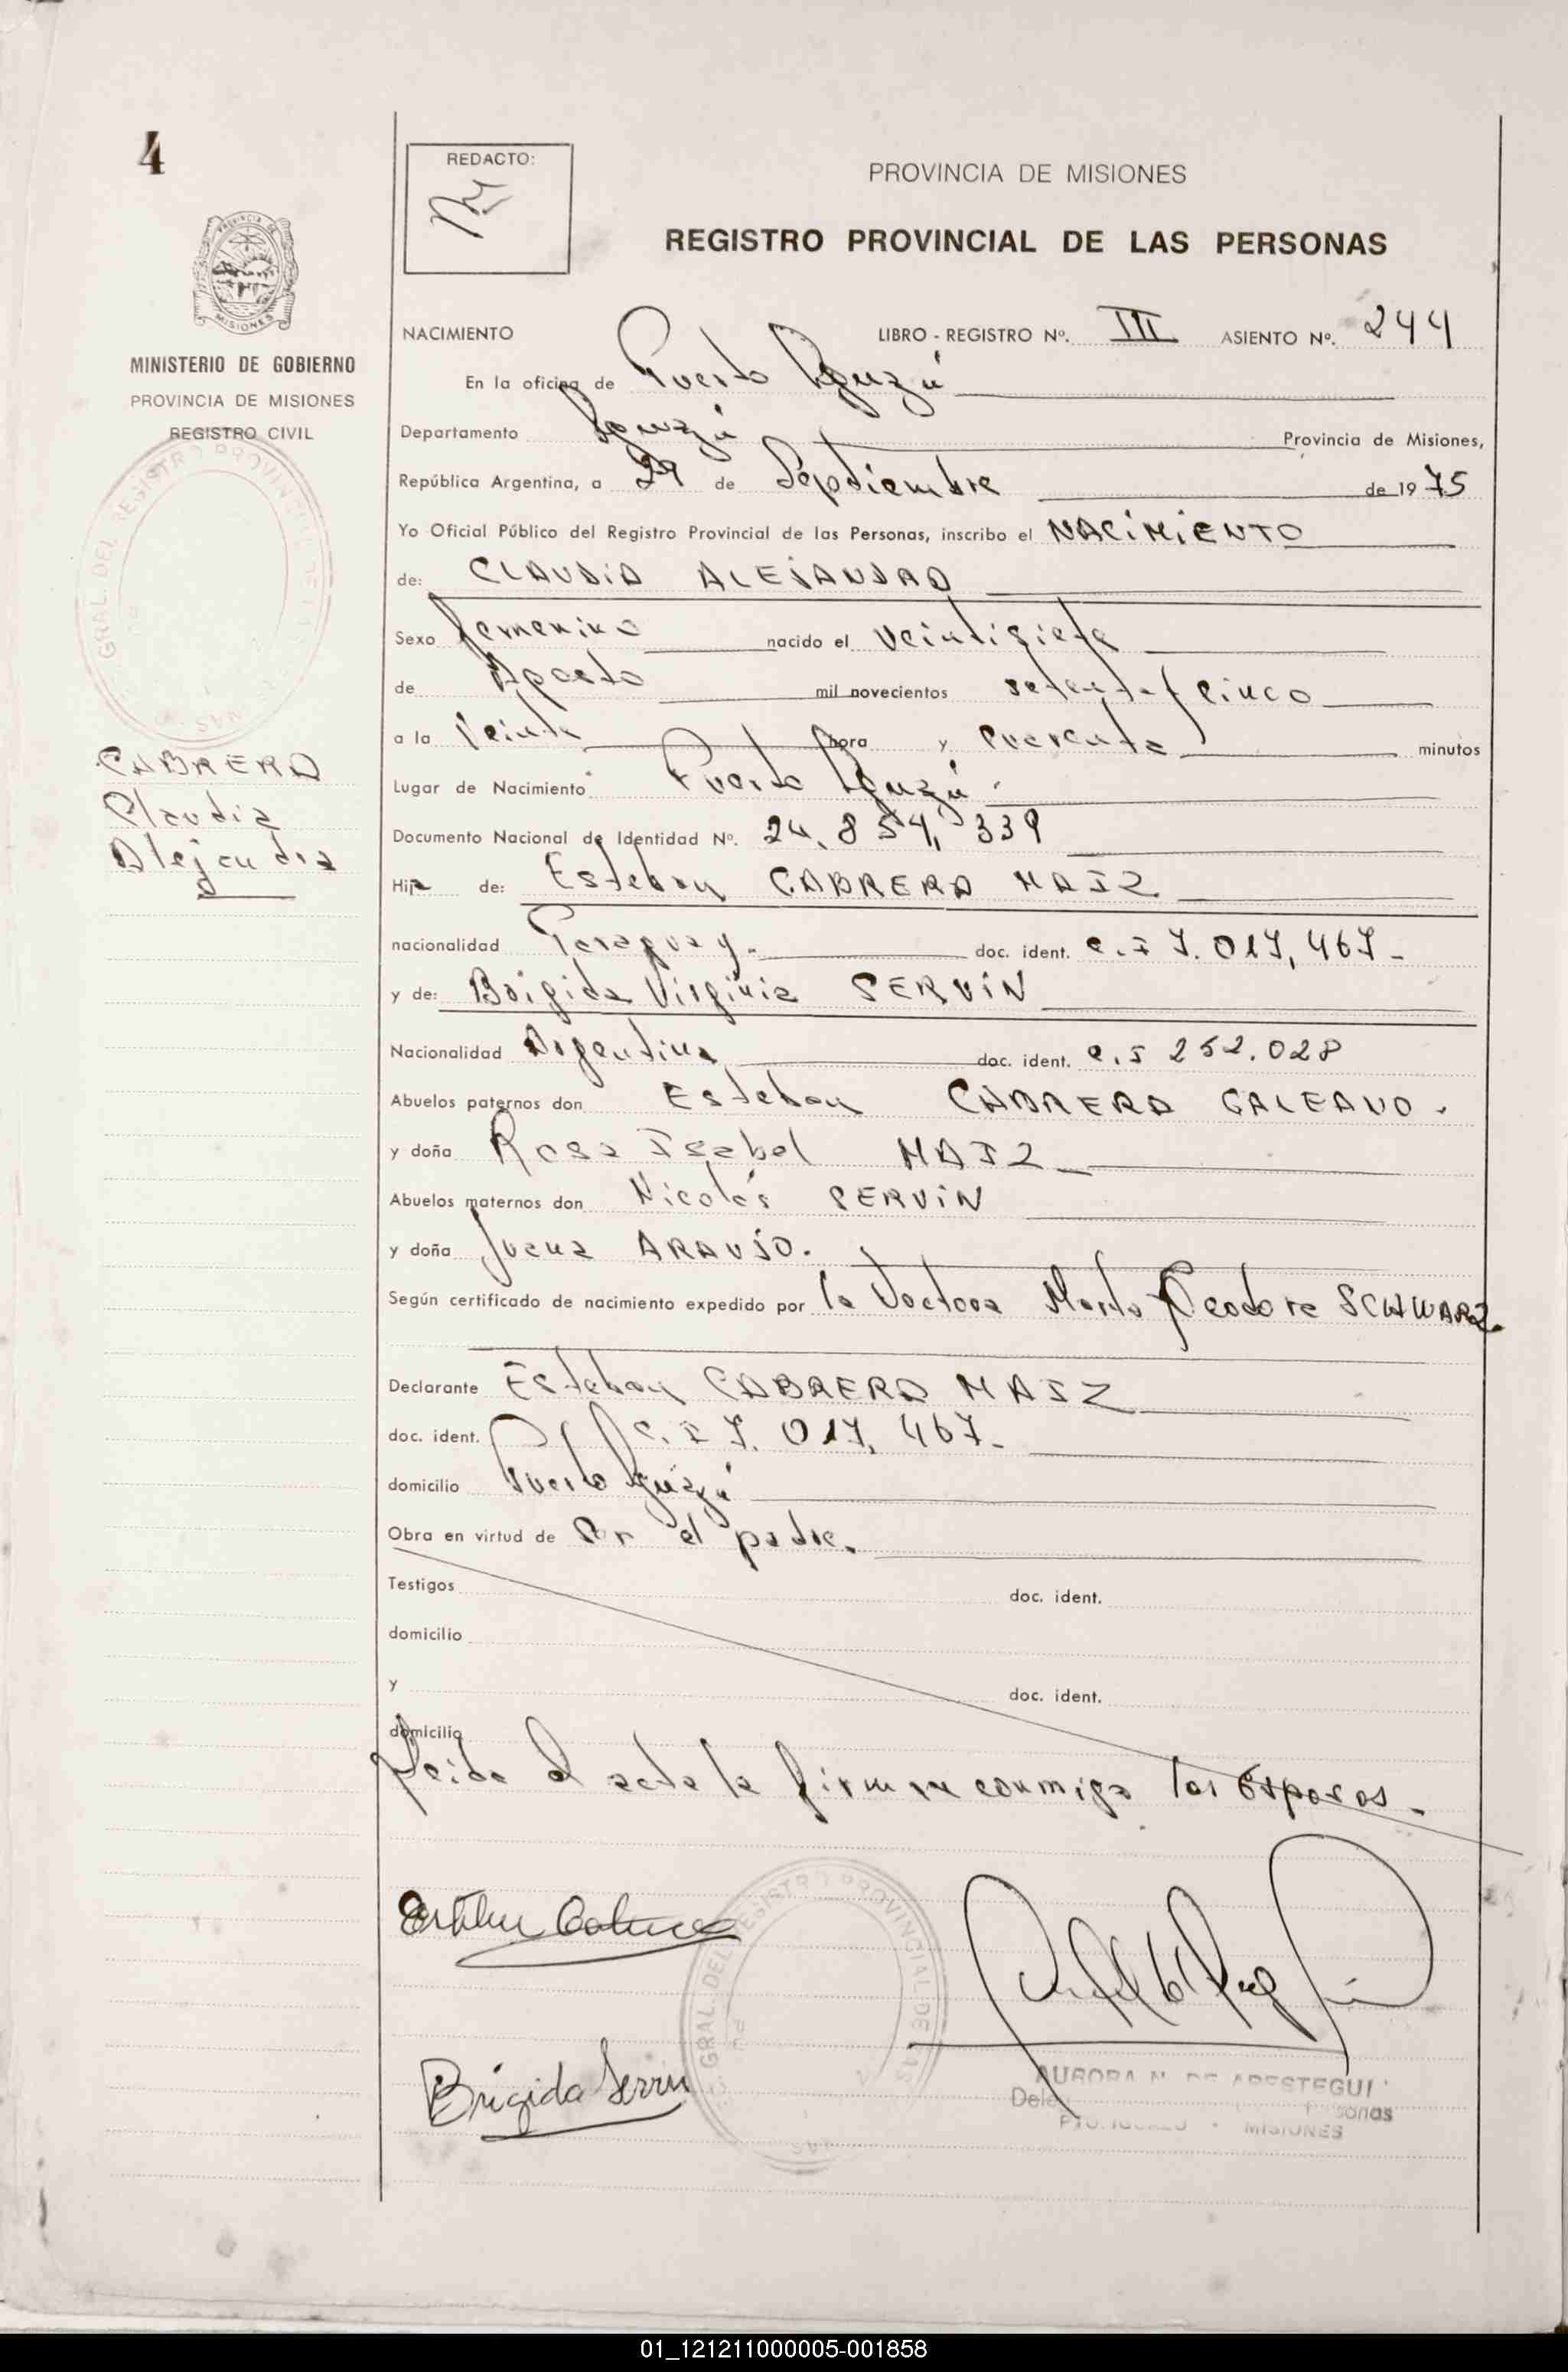 4
REDACTO:
PROVINCIA DE MISIONES
REGISTRO PROVINCIAL DE LAS PERSONAS
MISIONES
MINISTERIO DE GOBIERNO
PROVINCIA DE MISIONES
REGISTRO CIVIL
GRAL. DEL REGISTRO PROVINCIAL DE LAS
CABRERA
Claudia
Alejandra
NACIMIENTO LIBRO - REGISTRO Nº. III ASIENTO Nº. 244
En la oficina de Puerto Iguazú
Departamento Iguazú Provincia de Misiones,
República Argentina, a 29 de Septiembre de 1975
Yo Oficial Público del Registro Provincial de las Personas, inscribo el NACIMIENTO
de: CLAUDIA ALEJANDRA
Sexo femenino nacido el veintisiete
de Agosto mil novecientos setenta y cinco
a la Veinte hora y cuarenta minutos
Lugar de Nacimiento Puerto Iguazú.
Documento Nacional de Identidad Nº. 24.854.339
Hija de: Esteban CABRERA MAIZ
nacionalidad Paraguay.- doc. ident. C.I 7.017.467-
y de: Brigida Virginia SERVIN
Nacionalidad Argentina doc. ident. C.I 252.028
Abuelos paternos don Esteban CABRERA GALEANO.
y doña Rosa Isabel MAIZ
Abuelos maternos don Nicolás SERVIN
y doña Juana ARAUJO.
Según certificado de nacimiento expedido por la Doctora Marta Teodora SCHWARZ.
Declarante Esteban CABRERA MAIZ
doc. ident. C.I 7.017.467-
domicilio Puerto Iguazú
Obra en virtud de Ser el padre.
Testigos doc. ident.
domicilio
y doc. ident.
domicilio
Leida el acta la firman conmigo los esposos.
GRAL. DEL REGISTRO PROVINCIAL DE LAS
Brigida Servin
AURORA N. DE ARESTEGUI
MISIONES
01_121211000005-001858